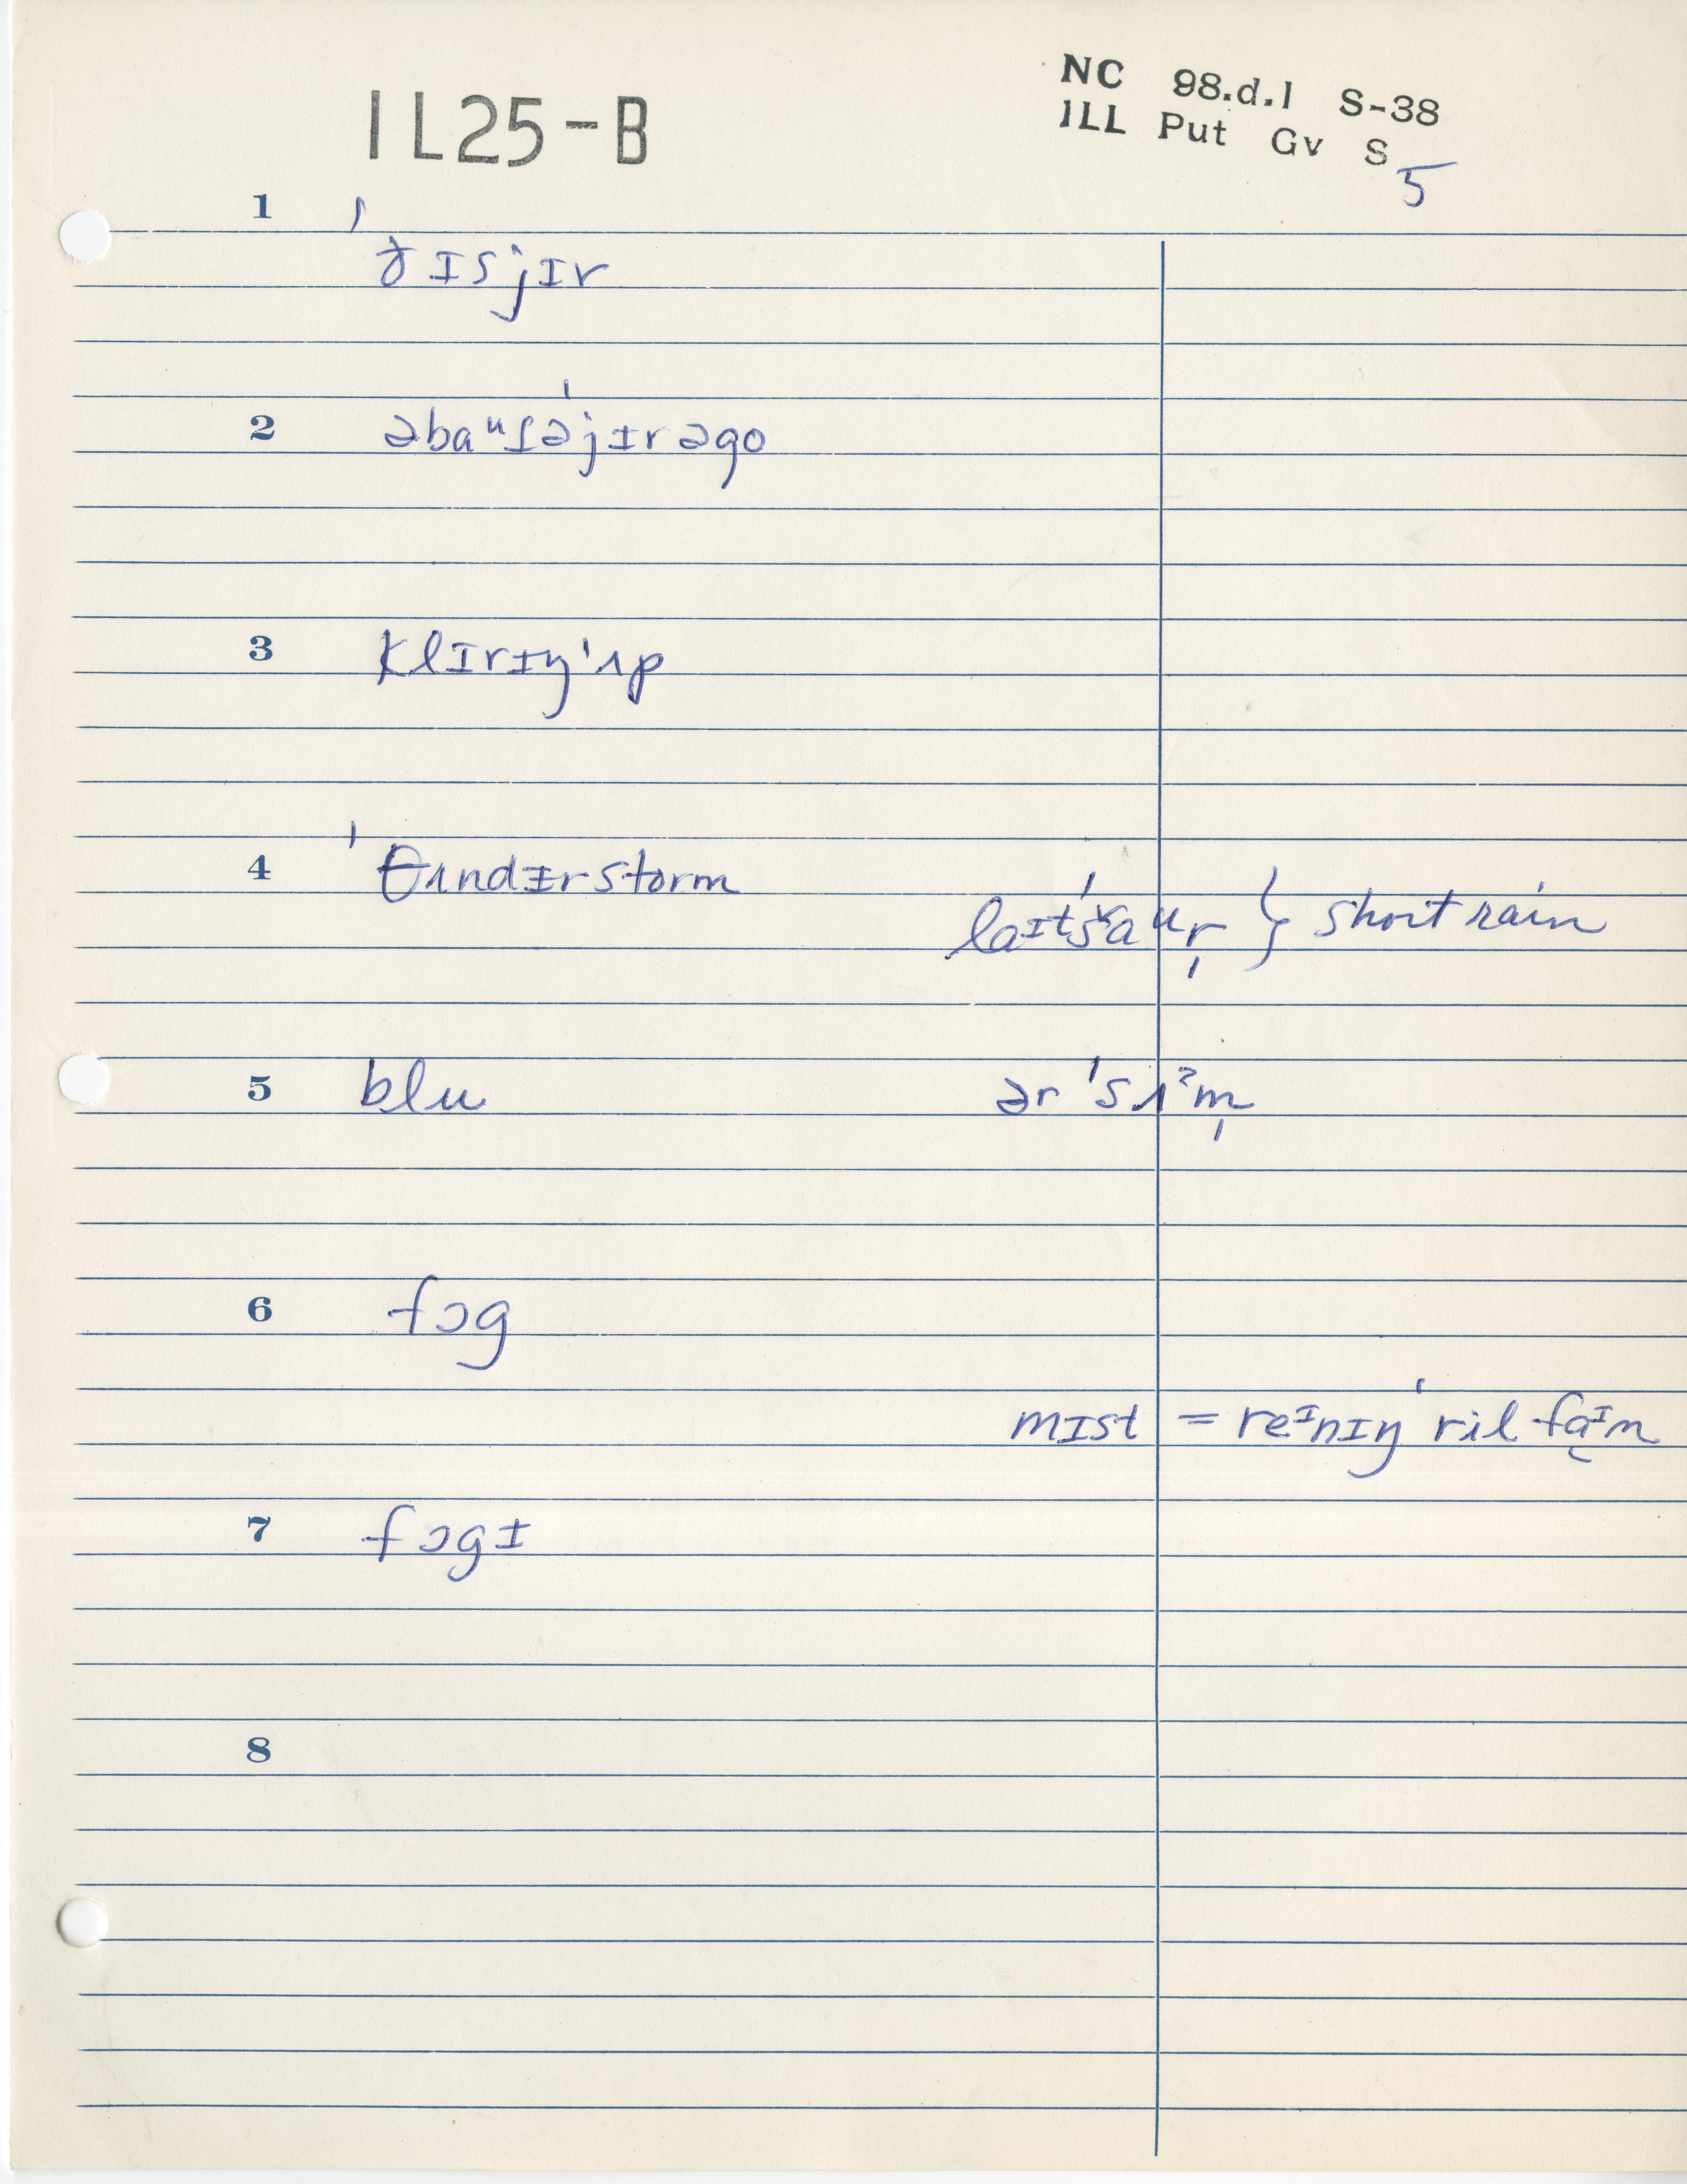 IL25-B
NC 98.d.1 S-38
ILL Put Gv S
5
1 ˈðɪsjɪr
2 əbaᵘɾəˈjɪrəgo
3 klɪrɪŋˈʌp
4 ˈθʌndɪrstorm
laɪtˈšaᵘr̩ } short rain
5 blu ərˈsʌˀm̩
6 fɔg
mɪst = reᶦnɪŋˈril faᶦn
7 fɔgɪ
8